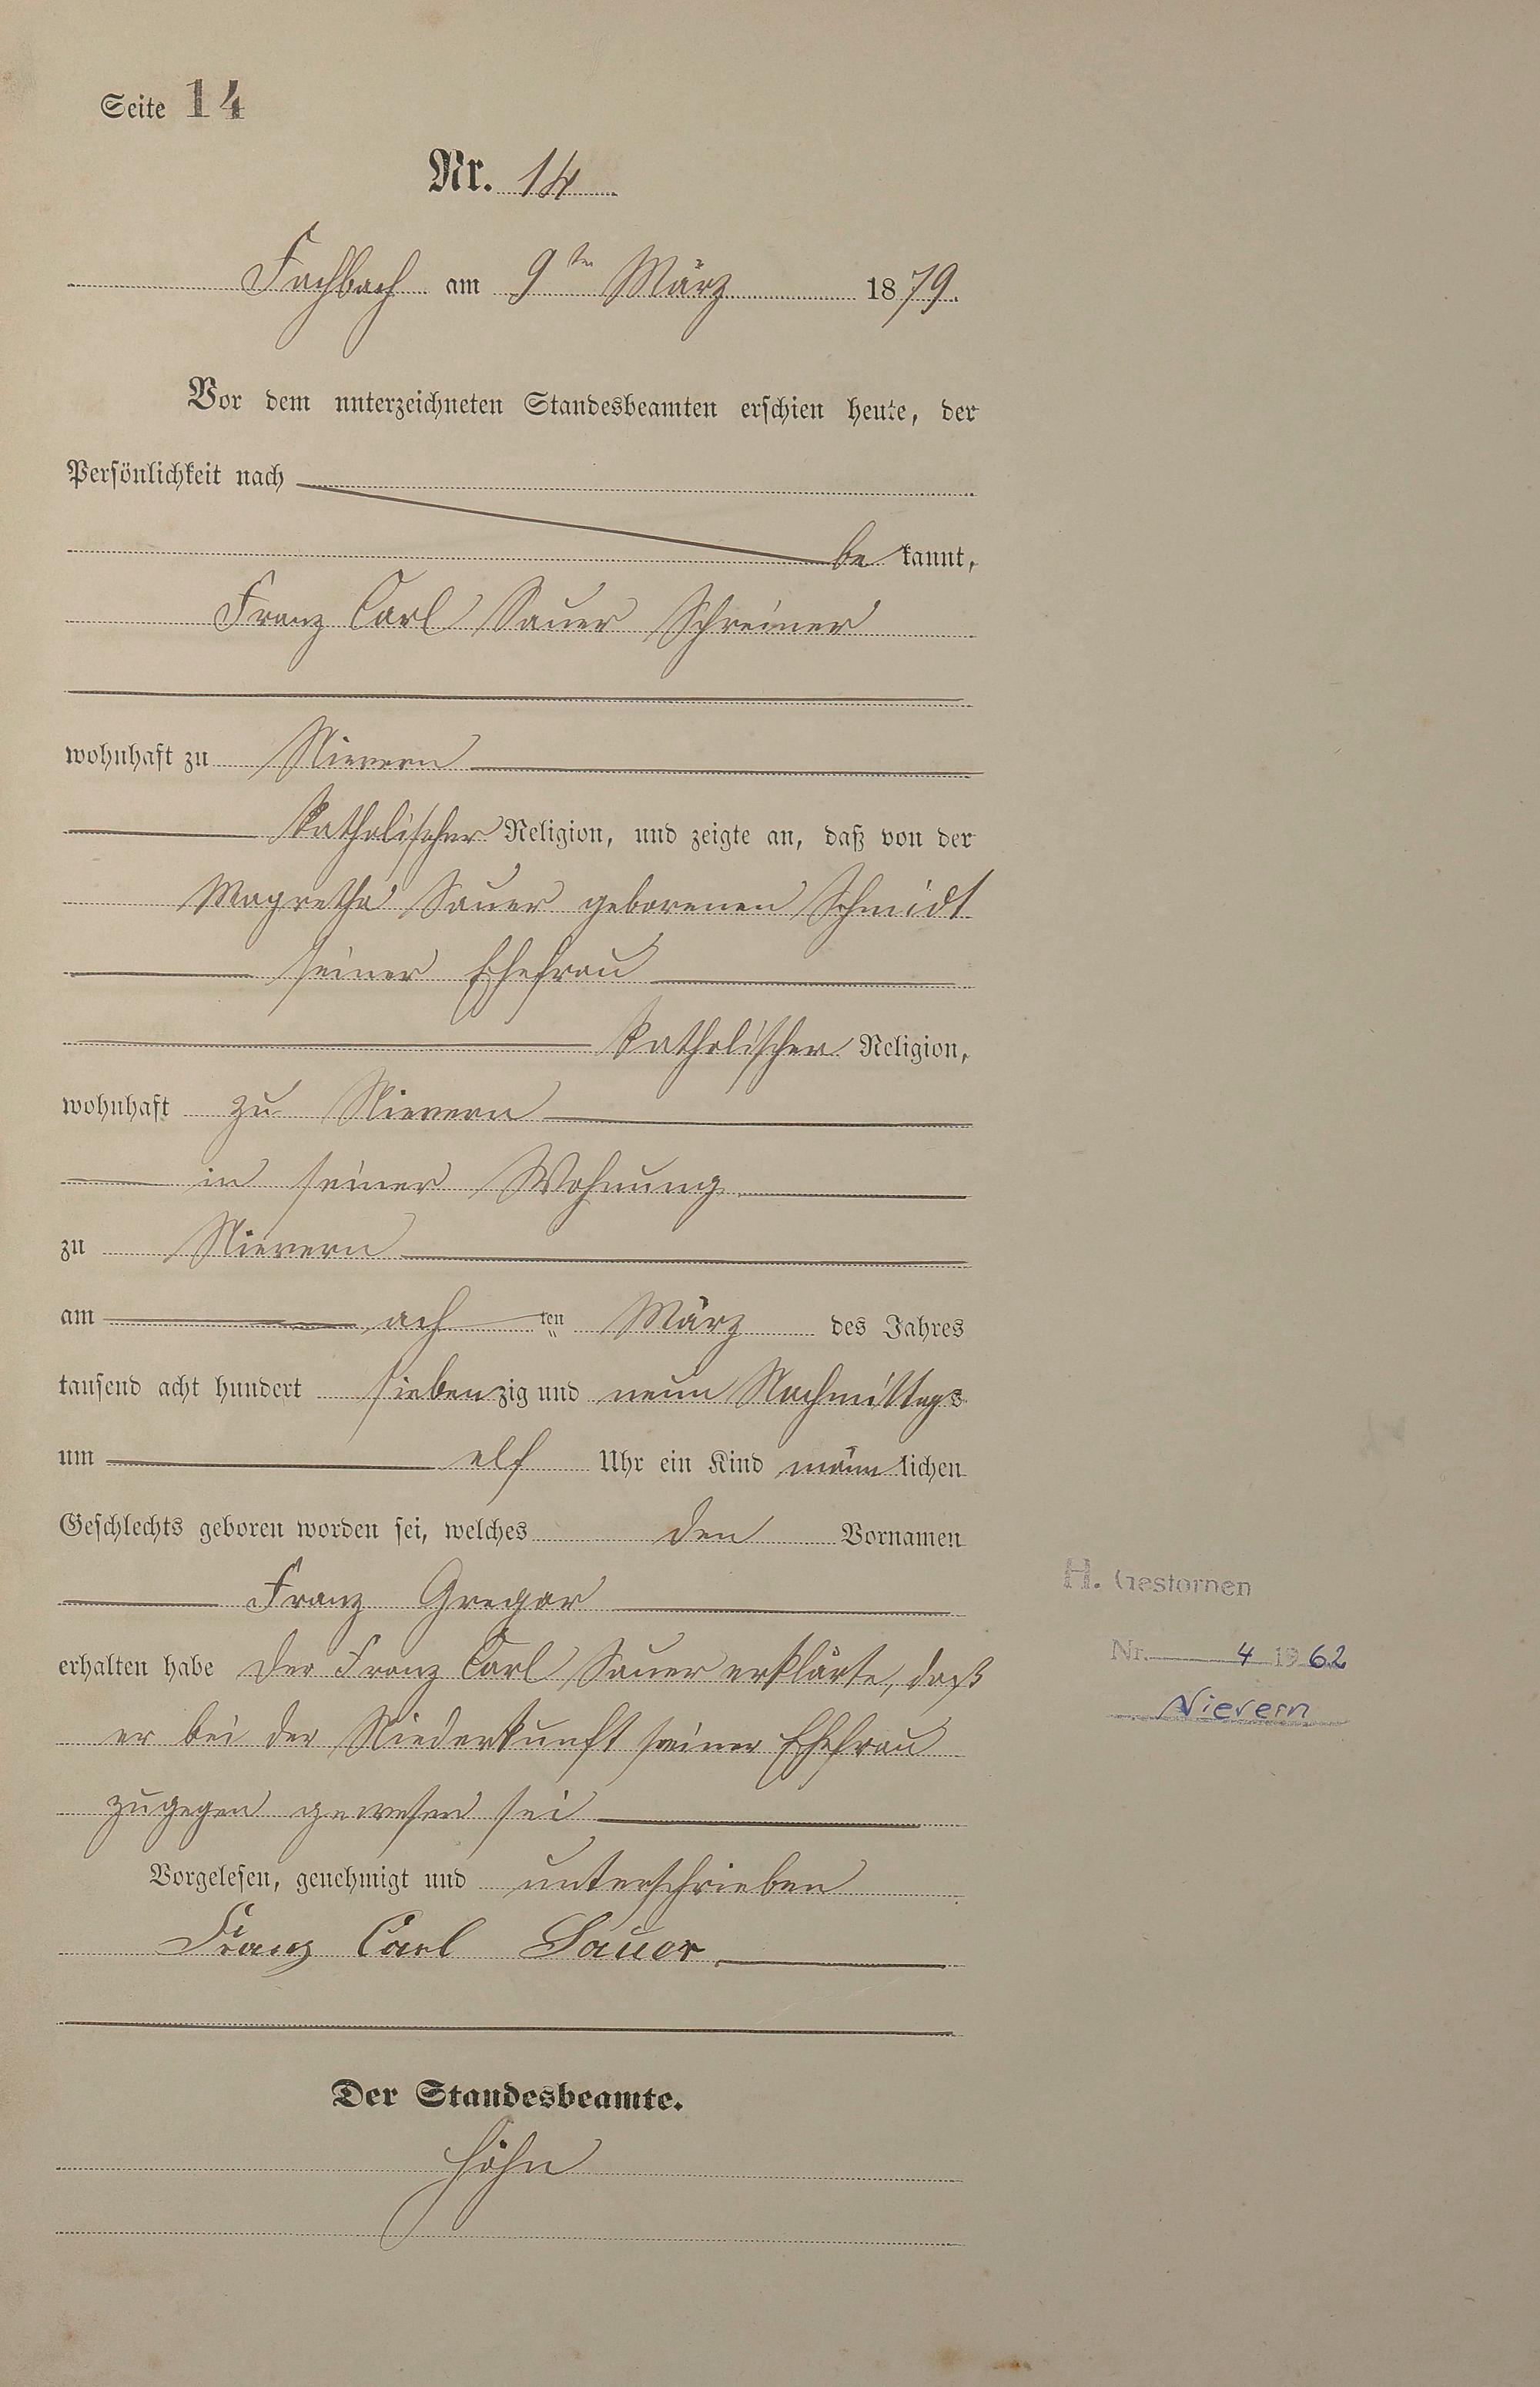 Seite 14
Nr. 14
Fachbach am 9ten März 1879.
Vor dem unterzeichneten Standesbeamten erschien heute, der
Persönlichkeit nach
be kannt,
Franz Carl Sauer Schreiner
wohnhaft zu Nievern
Katholischer Religion, und zeigte an, daß von der
Magretha Sauer geborenen Schmidt
seiner Ehefrau
Katholischer Religion,
wohnhaft zu Nievern
in seiner Wohnung
zu Nievern
am ach ten März des Jahres
tausend acht hundert siebenzig und neun Nachmittags
um elf Uhr ein Kind männlichen
Geschlechts geboren worden sei, welches den Vornamen
Franz Gregor
erhalten habe Der Franz Carl Sauer erklärte, daß
er bei der Niederkunft seiner Ehefrau
zugegen gewesen sei
Vorgelesen, genehmigt und unterschrieben
Franz Carl Sauer
Der Standesbeamte.
Höhn
H. Gestorben
Nr. 4 1962
Nievern